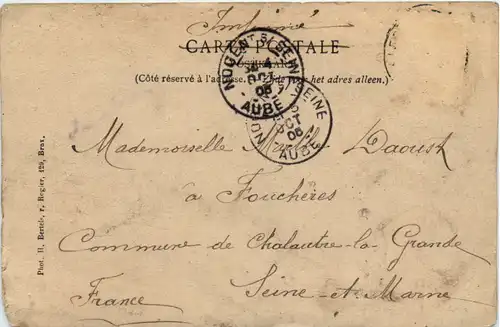 Imprimé
CARTE POSTALE
(Côté réservé à l'adresse. het adres alleen.)
NOGENT S/ SEINE
OCT
06
AUBE
SEINE
OCT
06
AUBE
Mademoiselle Daoust
à Fouchères
Commune de Chalautre-la-Grande
Seine-et-Marne
France
Phot. H. Bertels, r. Rogier, 128, Brux.